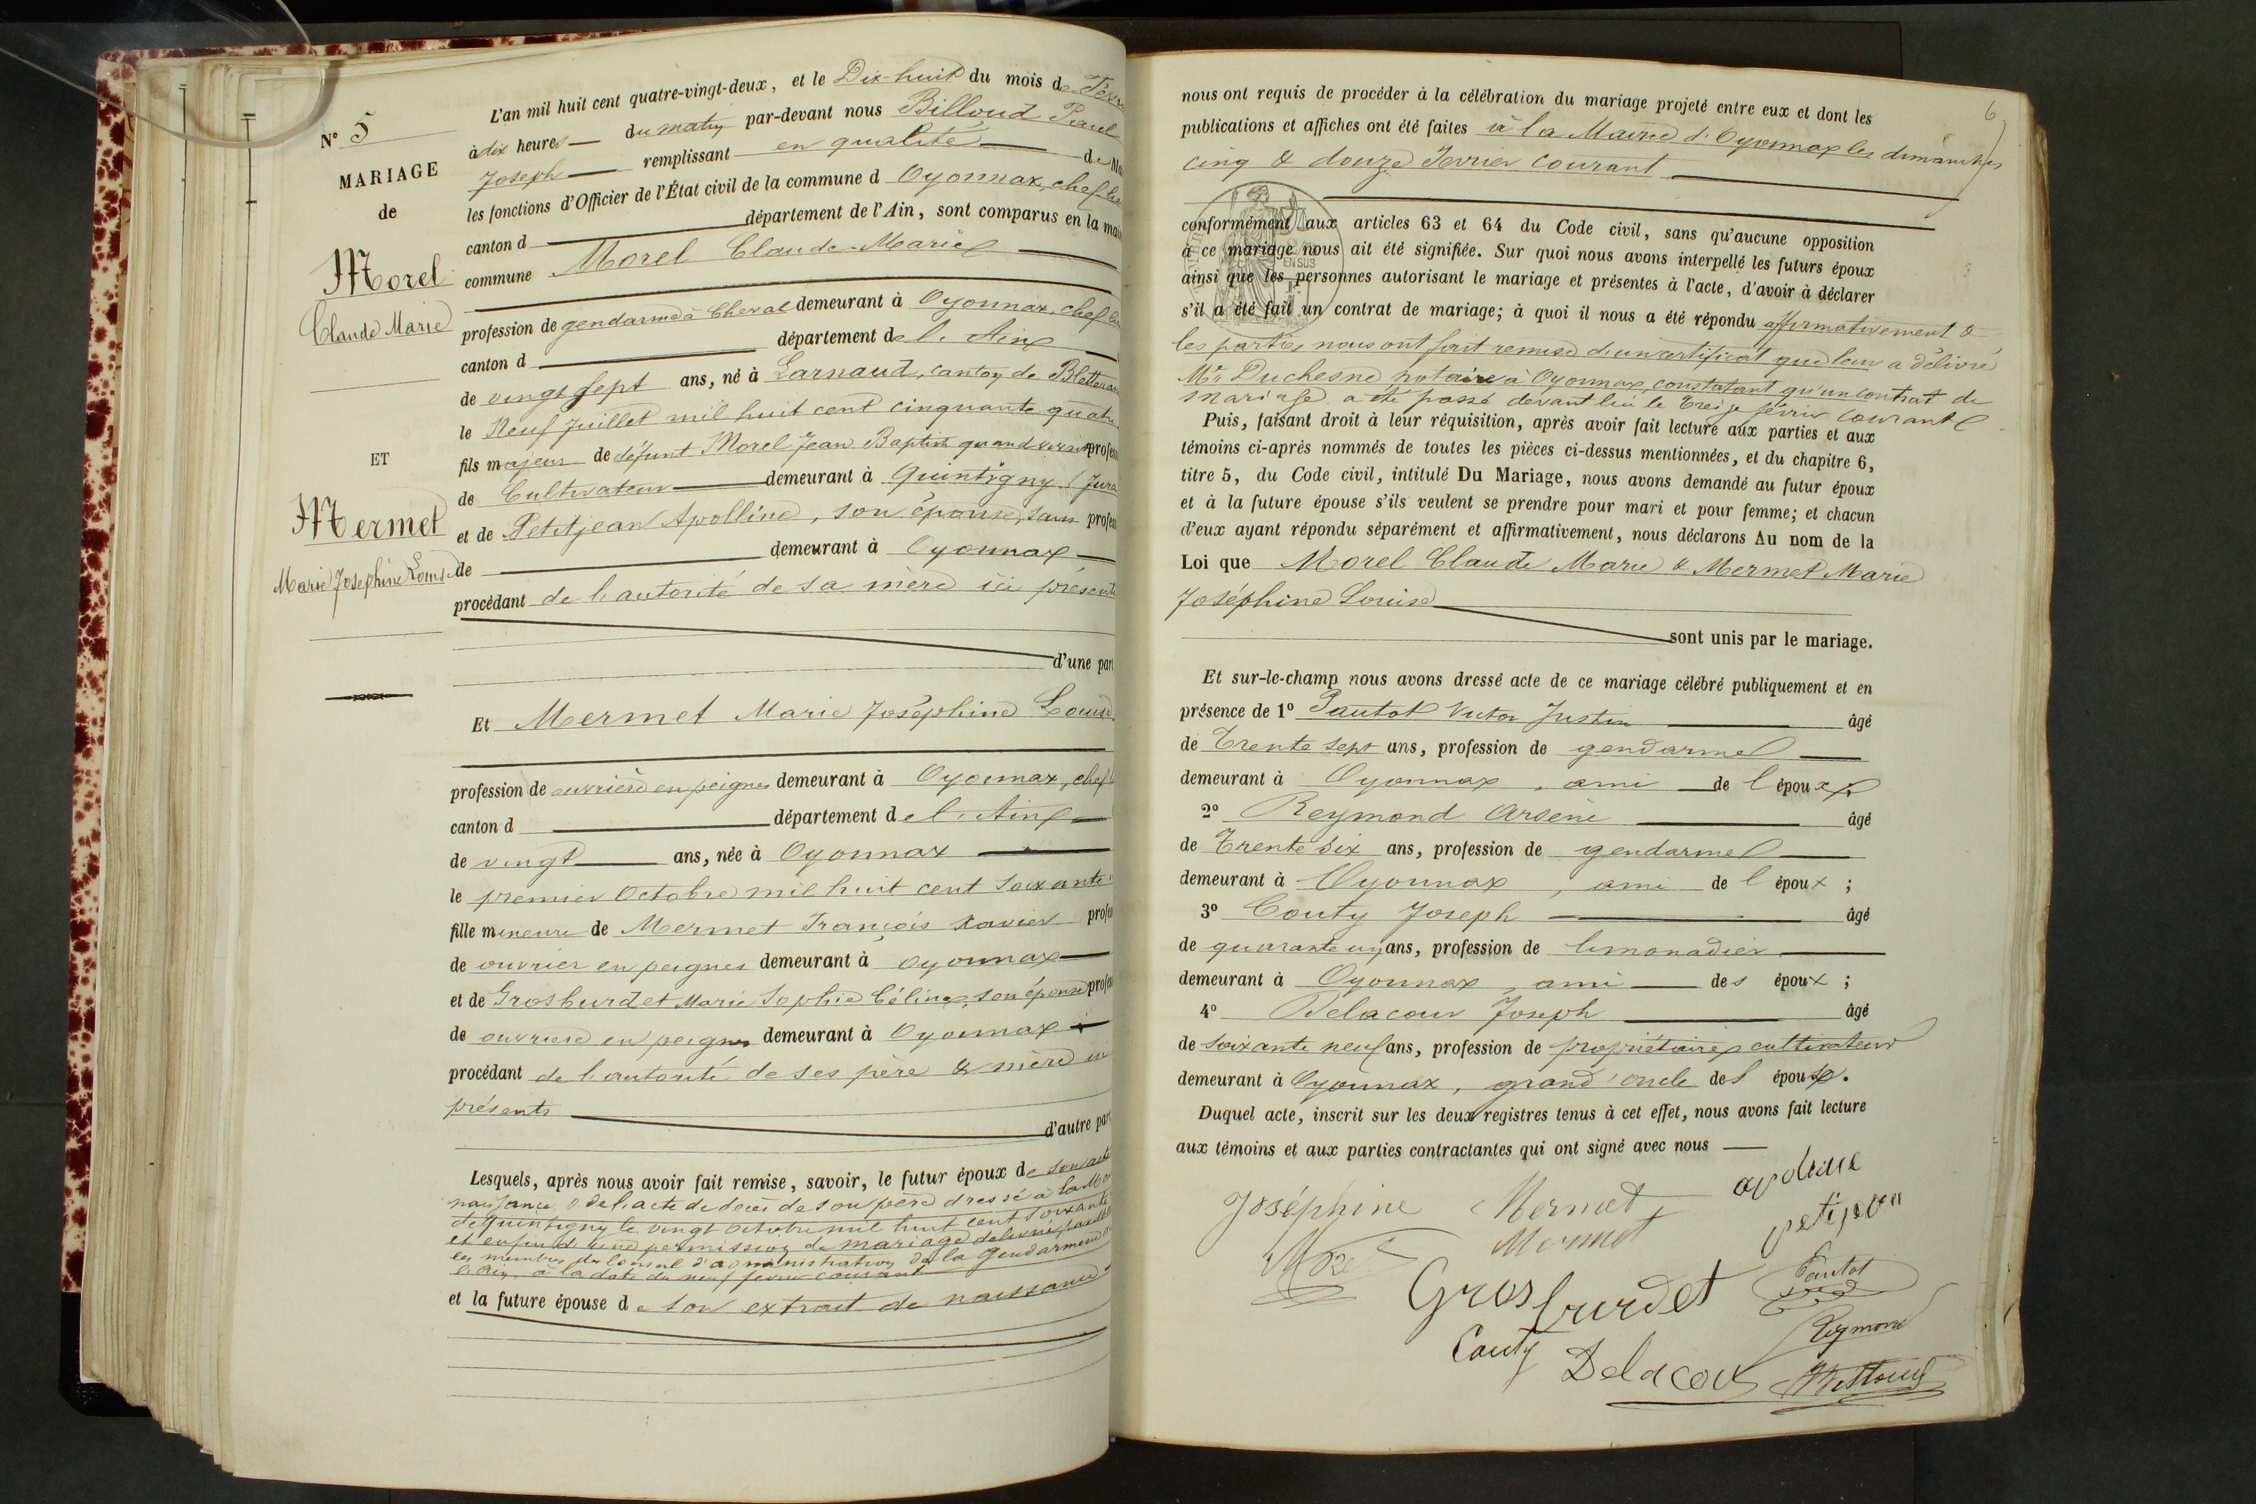 N° 5
MARIAGE
de
Morel
Claude Marie
ET
Mermet
Marie Josephine Louise
L'an mil huit cent quatre-vingt-deux, et le Dix-huit du mois de
à dix heures du matin par-devant nous Billoud Paul
Joseph remplissant en qualité de
les fonctions d'Officier de l'État civil de la commune d Oyonnax, chef
canton d département de l'Ain, sont comparus en la
commune Morel Claude-Marie
profession de gendarme à Cheval demeurant à Oyonnax, chef
canton d département de l'Ain
de vingt sept ans, né à Larnaud, canton de
le Neuf Juillet mil huit cent cinquante quatre
fils majeur de défunt Morel Jean Baptiste quand vivant
de Cultivateur demeurant à Quintigny (Jura
et de Petitjean Apolline, son épouse, sans
de demeurant à Oyonnax
procédant de l'autorité de sa mère ici présente
d'une part
Et Mermet Marie Joséphine Louise
profession de ouvrière en peignes demeurant à Oyonnax, chef
canton d département de l'Ain
de vingt ans, née à Oyonnax
le premier Octobre mil huit cent soixante
fille mineure de Mermet François Xavier
de ouvrier en peignes demeurant à Oyonnax
et de Grosburdet Marie Sophie Céline, son épouse
de ouvrière en peignes demeurant à Oyonnax
procédant de l'autorité de ses père & mère ici
présents
d'autre part
Lesquels, après nous avoir fait remise, savoir, le futur époux de son acte
naissance de l'acte de décès de son père dressé à la
de Quintigny le vingt Octobre mil huit cent soixante
et enfin d'une permission de mariage délivrée par
les membres du Conseil d'administration de la Gendarmerie
l'Ain, à la date du neuf février courant
et la future épouse de son extrait de naissance
6
nous ont requis de procéder à la célébration du mariage projeté entre eux et dont les
publications et affiches ont été faites à la Mairie d'Oyonnax les dimanches
cinq & douze Fevrier courant
conformément aux articles 63 et 64 du Code civil, sans qu'aucune opposition
à ce mariage nous ait été signifiée. Sur quoi nous avons interpellé les futurs époux
ainsi que les personnes autorisant le mariage et présentes à l'acte, d'avoir à déclarer
s'il a été fait un contrat de mariage; à quoi il nous a été répondu affirmativement &
les parties nous ont fait remise d'un certificat que leur a délivré
Me Duchesne notaire à Oyonnax, constatant qu'un contrat de
mariage a été passé devant lui le treize février courant
Puis, faisant droit à leur réquisition, après avoir fait lecture aux parties et aux
témoins ci-après nommés de toutes les pièces ci-dessus mentionnées, et du chapitre 6,
titre 5, du Code civil, intitulé Du Mariage, nous avons demandé au futur époux
et à la future épouse s'ils veulent se prendre pour mari et pour femme; et chacun
d'eux ayant répondu séparément et affirmativement, nous déclarons Au nom de la
Loi que Morel Claude Marie & Mermet Marie
Joséphine Louise
sont unis par le mariage.
Et sur-le-champ nous avons dressé acte de ce mariage célébré publiquement et en
présence de 1° Pautot Victor Justin âgé
de Trente sept ans, profession de gendarme
demeurant à Oyonnax, ami de l époux
2° Reymond Arsène âgé
de Trente six ans, profession de gendarme
demeurant à Oyonnax, ami de l époux ;
3° Couty Joseph âgé
de quarante un ans, profession de limonadier
demeurant à Oyonnax, ami des époux ;
4° Delacour Joseph âgé
de soixante neuf ans, profession de propriétaire cultivateur
demeurant à Oyonnax, grand'oncle de l épouse.
Duquel acte, inscrit sur les deux registres tenus à cet effet, nous avons fait lecture
aux témoins et aux parties contractantes qui ont signé avec nous
Joséphine Mermet
Mermet
Grosburdet
Pautot
Reymond
Couty
Delacour